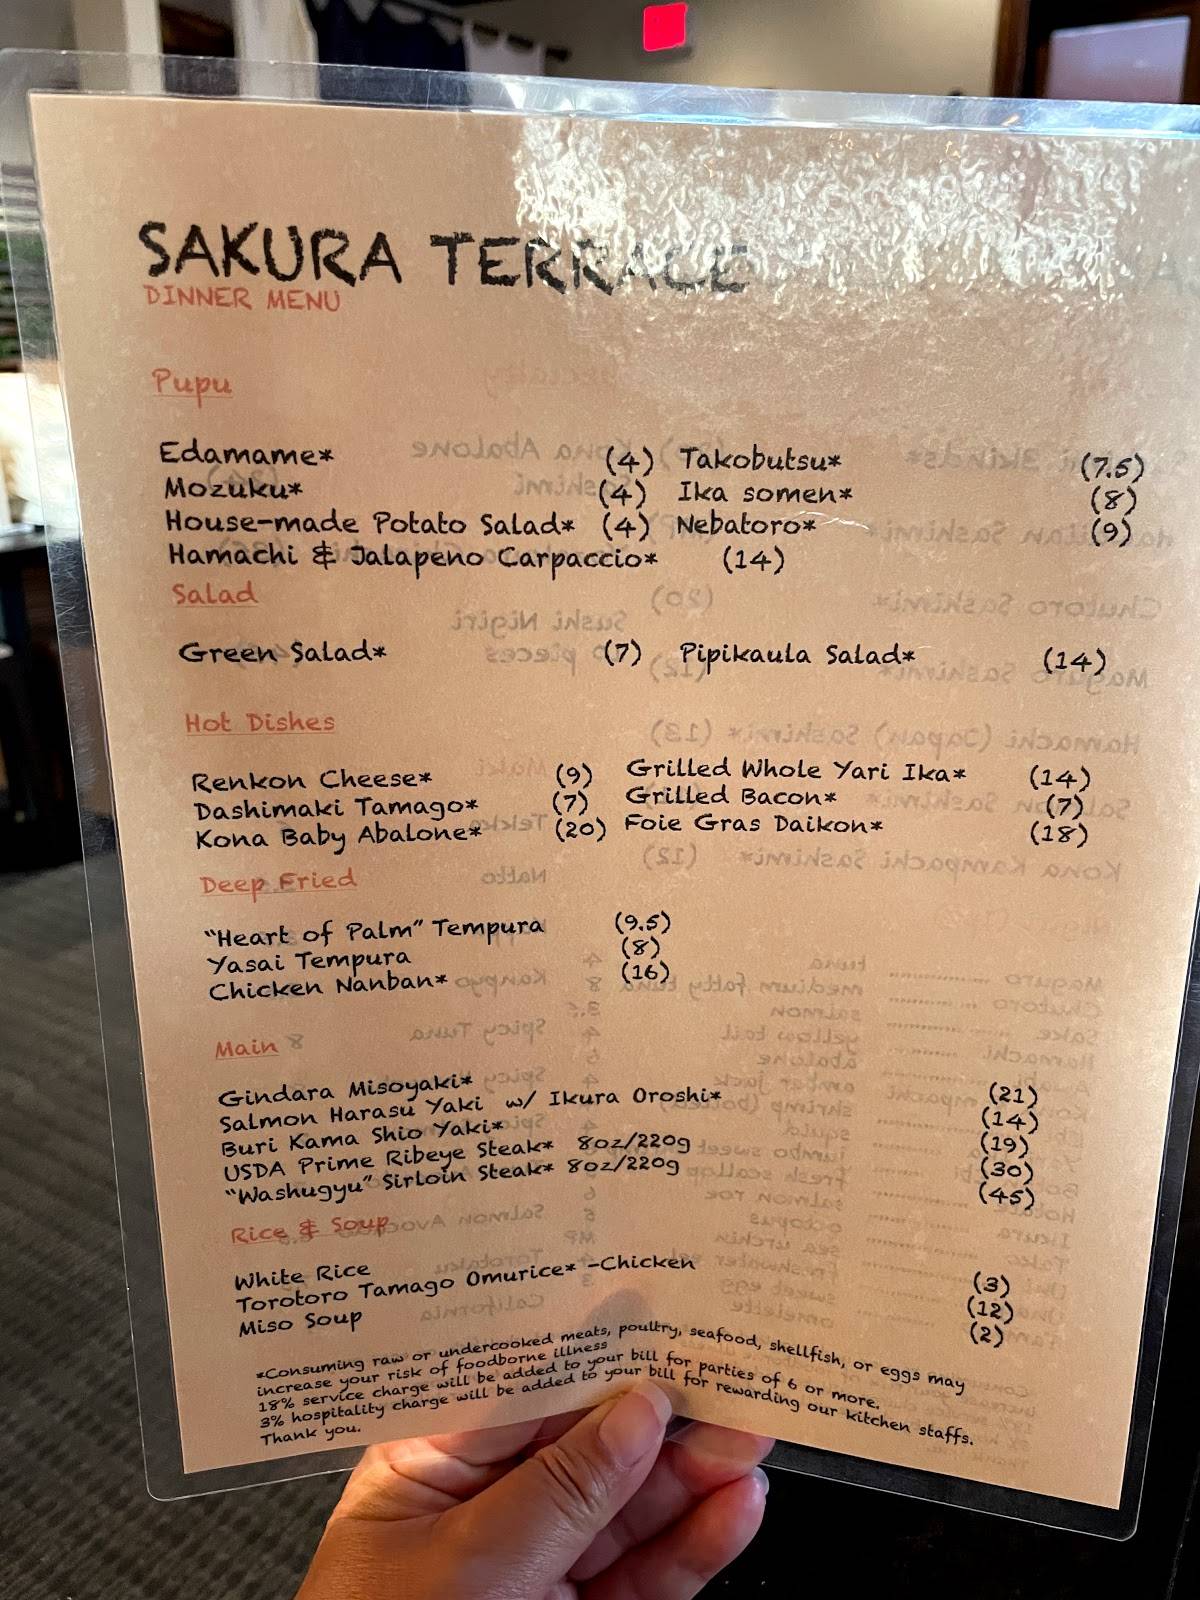 SAKURA TERRACE
DINNER MENU
Pupu
Edamame* (4) Takobutsu* (7.5)
Mozuku* (4) Ika somen* (8)
House-made Potato Salad* (4) Nebatoro* (9)
Hamachi & Jalapeno Carpaccio* (14)
Salad
Green Salad* (7) Pipikaula Salad* (14)
Hot Dishes
Renkon Cheese* (9) Grilled Whole Yari Ika* (14)
Dashimaki Tamago* (7) Grilled Bacon* (7)
Kona Baby Abalone* (20) Foie Gras Daikon* (18)
Deep Fried
"Heart of Palm" Tempura (9.5)
Yasai Tempura (8)
Chicken Nanban* (16)
Main
Gindara Misoyaki* (21)
Salmon Harasu Yaki w/ Ikura Oroshi* (14)
Buri Kama Shio Yaki* (19)
USDA Prime Ribeye Steak* 8oz/220g (30)
"Washugyu" Sirloin Steak* 8oz/220g (45)
Rice & Soup
White Rice (3)
Torotoro Tamago Omurice* -Chicken (12)
Miso Soup (2)
*Consuming raw or undercooked meats, poultry, seafood, shellfish, or eggs may
increase your risk of foodborne illness
18% service charge will be added to your bill for parties of 6 or more.
3% hospitality charge will be added to your bill for rewarding our kitchen staffs.
Thank you.